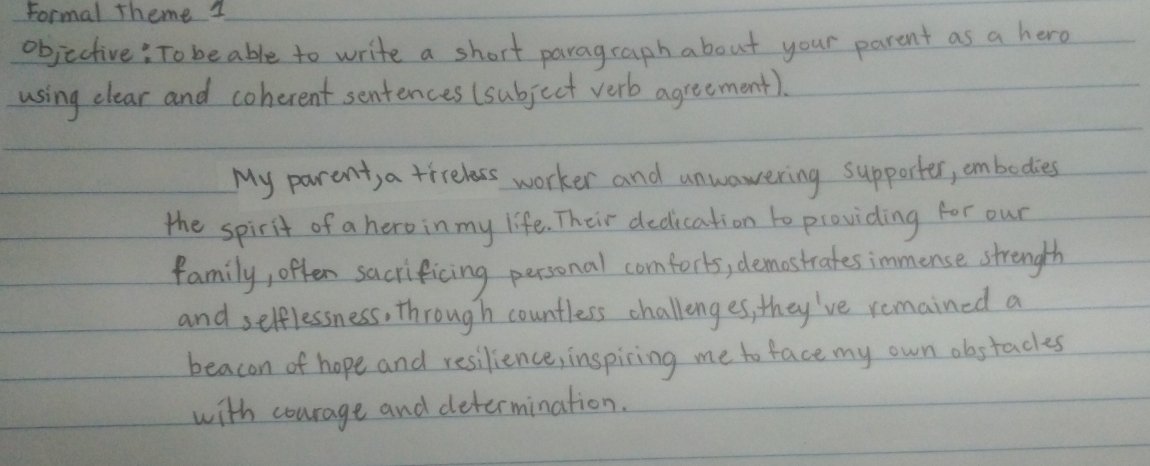 Formal Theme 1
Objective: To be able to write a short paragraph about your parent as a hero
using clear and coherent sentences (subject verb agreement).
My parent, a tireless worker and unwavering supporter, embodies
the spirit of a hero in my life. Their dedication to providing for our
family, often sacrificing personal comforts, demostrates immense strength
and selflessness. Through countless challenges, they've remained a
beacon of hope and resilience, inspiring me to face my own obstacles
with courage and determination.